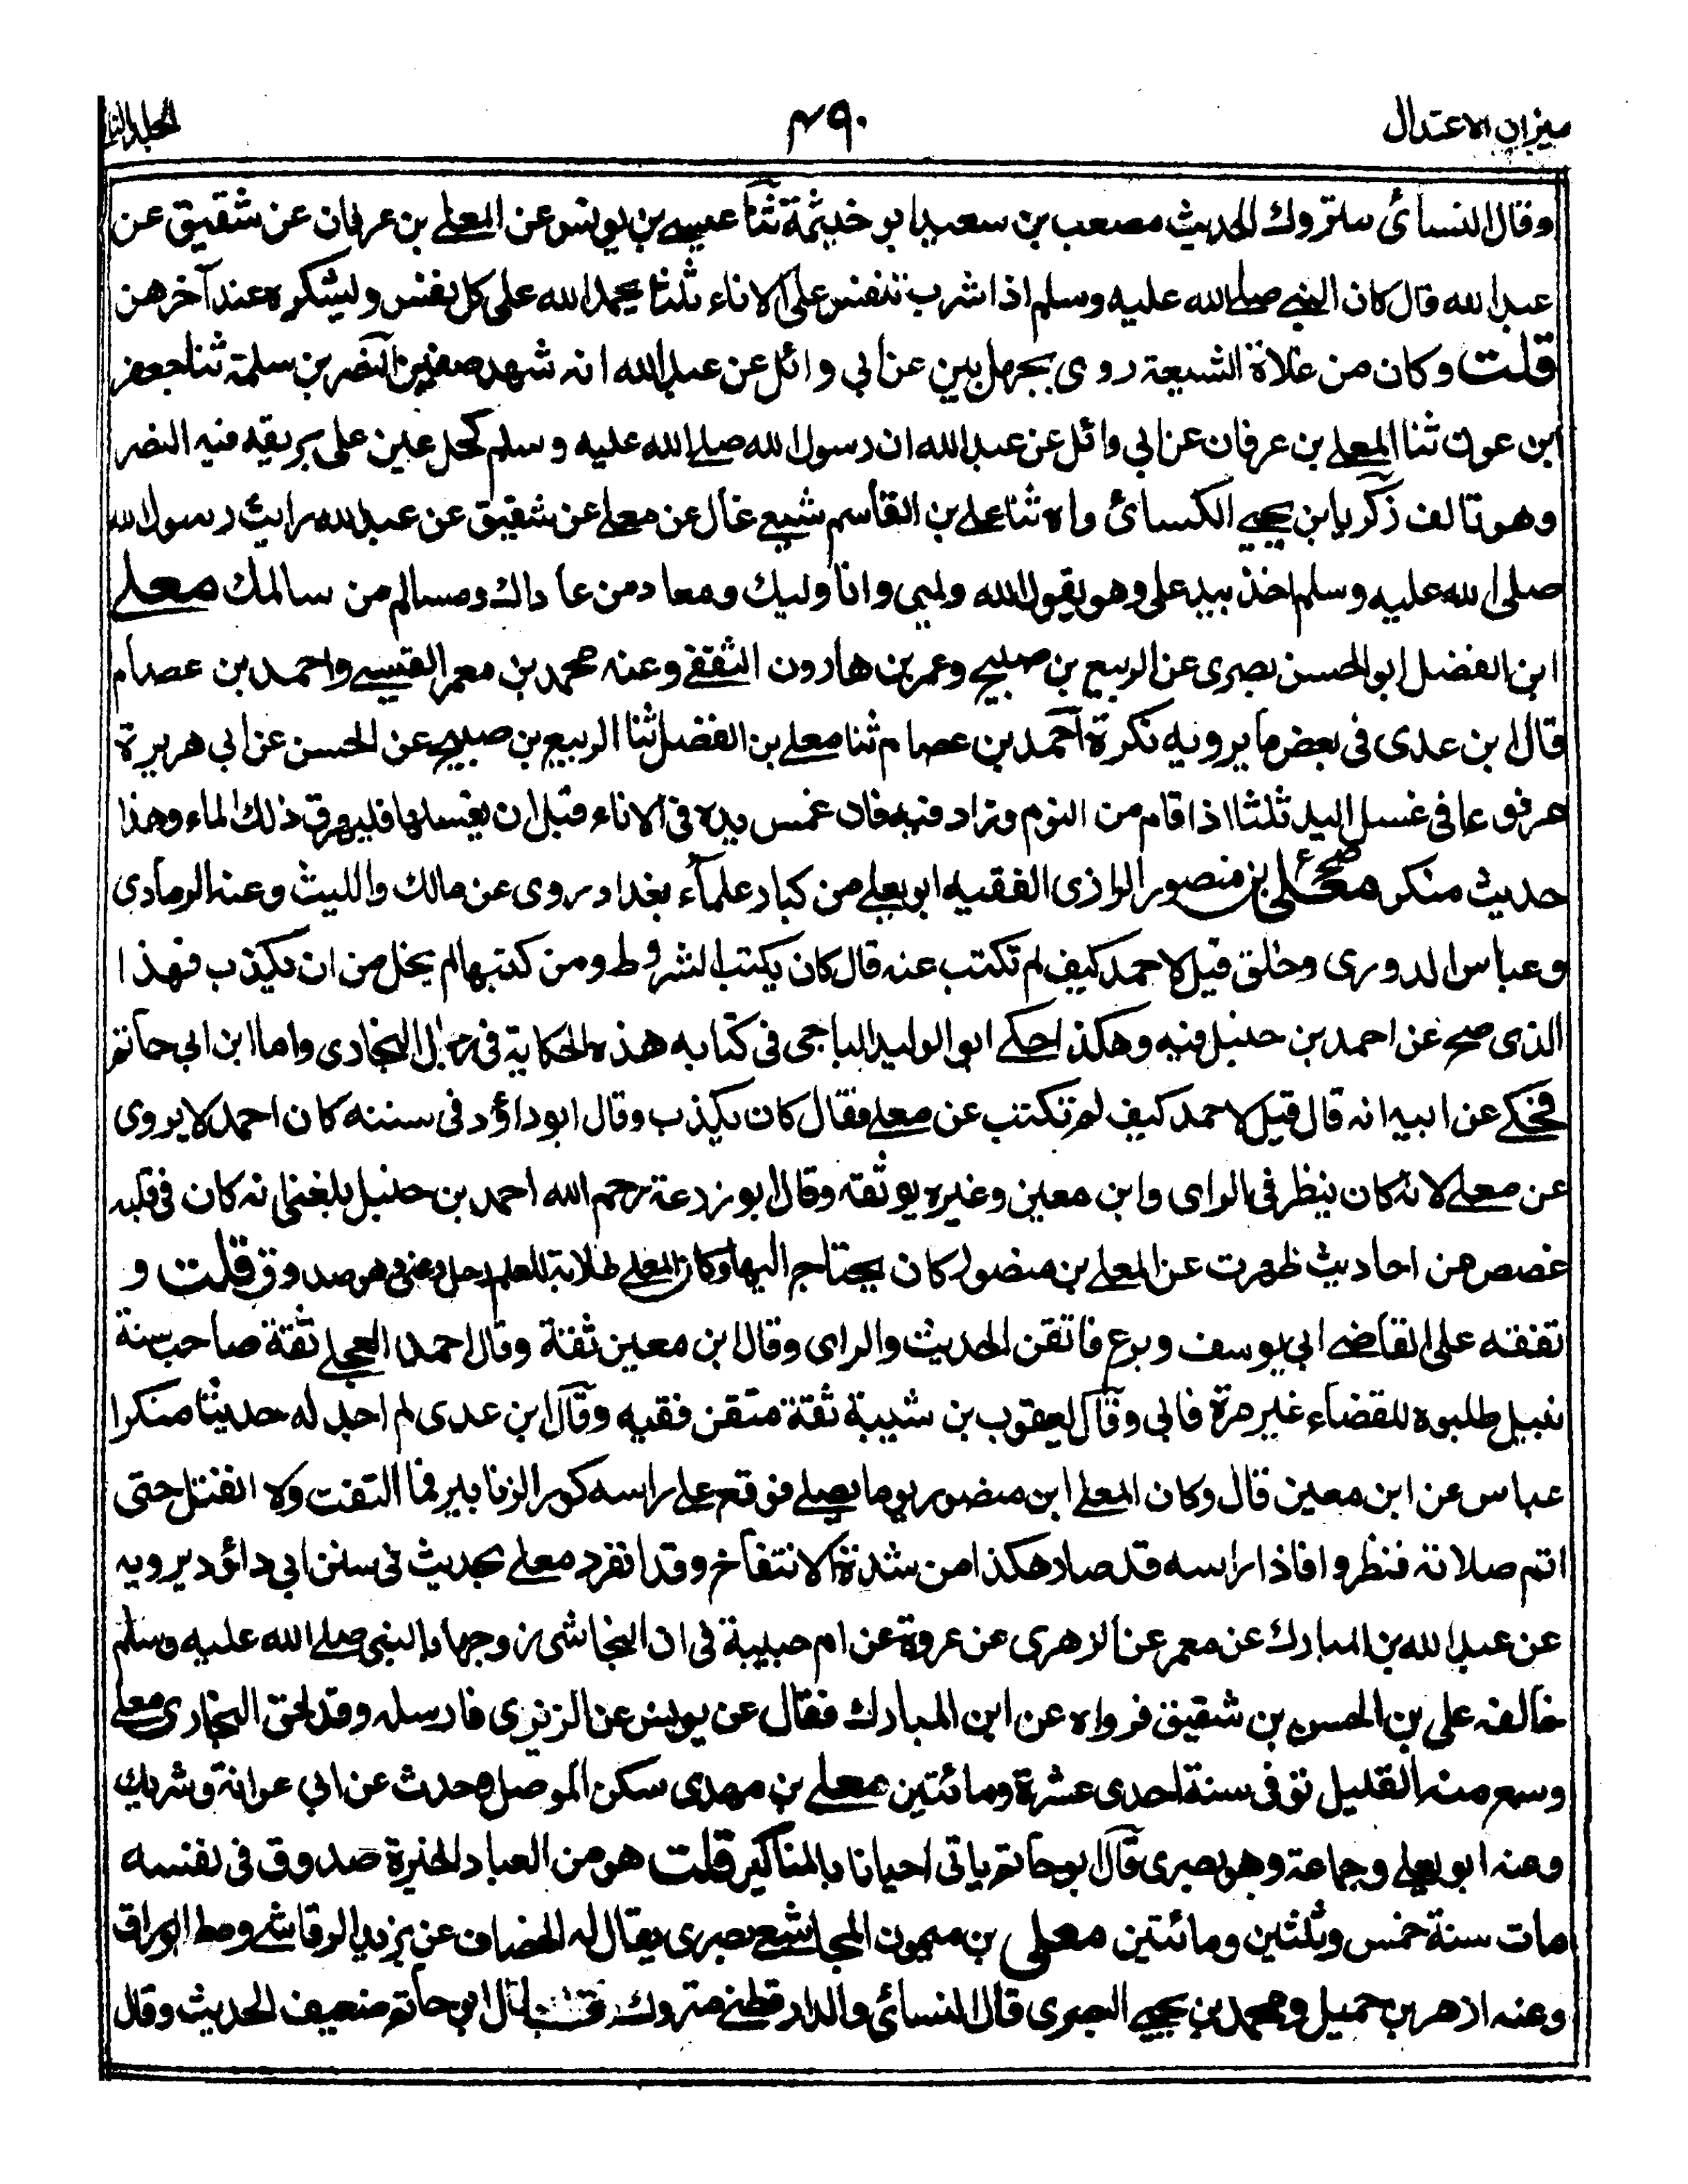 ميزان الاعتدال
٤٩٠
وقال النسائى متروك الحديث مصعب بن سعيد ابو خيثمة ثنا عيسى بن يونس عن المعلى بن عرفان عن شقيق عن
عبد الله قال كان النبى صلى الله عليه وسلم اذا شرب تنفس على الاناء ثلثا يحمد الله على كل نفس ويشكره عند آخرهن
قلت وكان من غلاة الشيعة روى بجهل بين عن ابي وائل عن عبد الله انه شهد صفين النضر بن سلمة ثنا جعفر
ابن عون ثنا المعلى بن عرفان عن ابي وائل عن عبد الله ان رسول الله صلى الله عليه وسلم كحل عين على بريقه فيه النضر
وهو تالف زكريا بن يحيى الكسائى واه ثنا على بن القاسم شيعى غال عن معلى عن شقيق عن عبد الله رايت رسول الله
صلى الله عليه وسلم اخذ بيد على وهو يقول الله وليى وانا وليك ومعاد من عاداك ومسالم من سالمك معلى
ابن الفضل ابو الحسن بصرى عن الربيع بن صبيح وعمر بن هارون الثقفى وعنه محمد بن معمر القيسى واحمد بن عصام
قال ابن عدى فى بعض ما يرويه نكرة احمد بن عصام ثنا معلى بن الفضل ثنا الربيع بن صبيح عن الحسن عن ابي هريرة
مرفوعا فى غسل اليد ثلثا اذا قام من النوم وزاد فيه فان غمس يده فى الاناء قبل ان يغسلها فليهرق ذلك الماء وهذا
حديث منكر معلى بن منصور الرازى الفقيه ابو يعلى من كبار علماء بغداد روى عن مالك والليث وعنه الرمادى
وعباس الدورى وخلق قيل لاحمد كيف لم تكتب عنه قال كان يكتب الشروط ومن كتبها لم يخل من ان يكذب فهذا
الذى صح عن احمد بن حنبل فيه وهكذا حكى ابو الوليد الباجى فى كتابه هذه الحكاية فى رجال البخارى واما ابن ابى حاتم
فحكى عن ابيه انه قال قيل لاحمد كيف لم تكتب عن معلى فقال كان يكذب وقال ابو داؤد فى سننه كان احمد لا يروى
عن معلى لانه كان ينظر فى الراى وابن معين وغيره يوثقه وقال ابو زرعة رحم الله احمد بن حنبل بلغنى انه كان فى قلبه
غصص من احاديث ظهرت عن المعلى بن منصور كان يحتاج اليها وكان المعلى طلابة للعلم رحل وعنى وهو صدوق قلت و
تفقه على القاضى ابى يوسف وبرع فاتقن الحديث والراى وقال ابن معين ثقة وقال احمد العجلى ثقة صاحب سنة
نبيل طلبوه للقضاء غير مرة فابى وقال يعقوب بن شيبة ثقة متقن فقيه وقال ابن عدى لم اجد له حديثا منكرا
عباس عن ابن معين قال وكان المعلى ابن منصور يوما يصلى فوقع على راسه كور الزنابير فما التفت ولا انفتل حتى
اتم صلاته فنظروا فاذا راسه قد صار هكذا من شدة الانتفاخ وقد انفرد معلى بحديث فى سنن ابي دائود يرويه
عن عبد الله بن المبارك عن معمر عن الزهرى عن عروة عن ام حبيبة فى ان النجاشى زوجها بالنبى صلى الله عليه وسلم
خالفه على بن الحسن بن شقيق فرواه عن ابن المبارك فقال عن يونس عن الزهرى فارسله وقد لحق البخارى معلى
وسمع منه القليل توفى سنة احدى عشرة ومائتين معلى بن مهدى سكن الموصل وحدث عن ابي عوانة وشريك
وعنه ابو يعلى وجماعة وهو بصرى قال ابو حاتم ياتى احيانا بالمناكير قلت هو من العباد الخيرة صدوق فى نفسه
مات سنة خمس وثلثين ومائتين معلى بن ميمون المجاشعى بصرى يقال له الخصاف عن يزيد الرقاشى ومطر الوراق
وعنه ازهر بن جميل ومحمد بن يحيى البصرى قال النسائى والدارقطنى متروك قال ابو حاتم ضعيف الحديث وقال